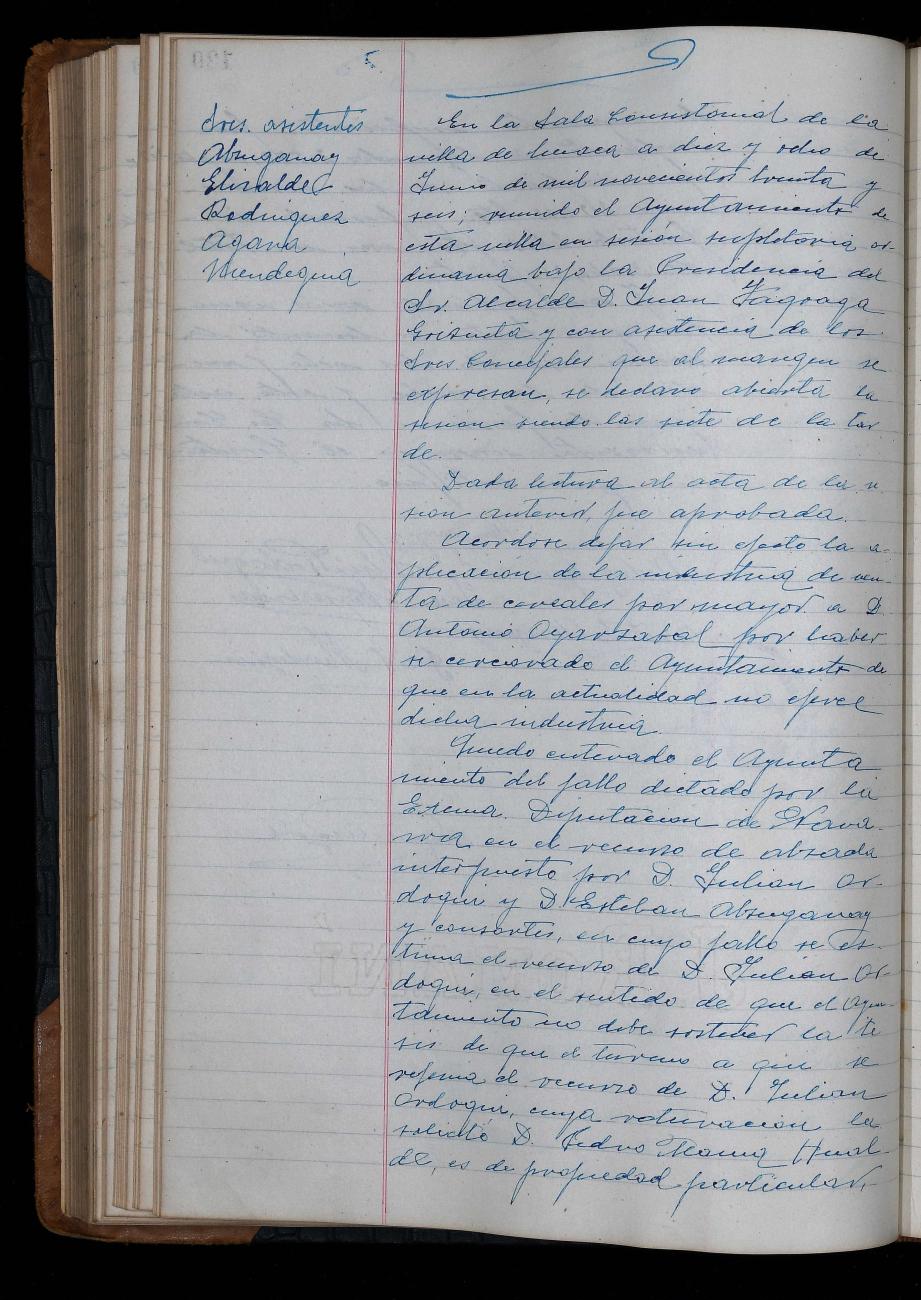 Sres. asistentes
Abinzanay
Elizalde
Rodriguez
Agara
Mendeguia
En la Sala Consistorial de la
villa de Lesaca a diez y ocho de
Junio de mil novecientos treinta y
seis; reunido el Ayuntamiento de
esta villa en sesión supletoria or-
dinaria bajo la Presidencia del
Sr. Alcalde D. Juan Yagoaga
y con asistencia de los
Sres. Concejales que al margen se
expresan, se declaró abierta la
sesion siendo las siete de la tar
de.
Dada lectura al acta de la
sion anterior, fue aprobada.
Acordose dejar sin efecto la a-
plicacion de la industria de ven-
ta de cereales por mayor a D.
Antonio Oyarzabal por haber
se cerciorado el Ayuntamiento de
que en la actualidad no ejerce
dicha industria.
Quedo enterado el Ayunta
miento del fallo dictado por la
Excma. Diputacion de Nava-
rra en el recurso de alzada
interpuesto por D. Julian Or-
doqui y D. Esteban Abinzanay
y consortes, en cuyo fallo se es-
tima el recurso de D. Julian Or-
doqui, en el sentido de que el Ayun-
tamiento no debe sostener la te
sis de que el terreno a que se
referia el recurso de D. Julian
Ordoqui, cuya roturacion la
solicitó D. Pedro Maria Hual
de, es de propiedad particular,